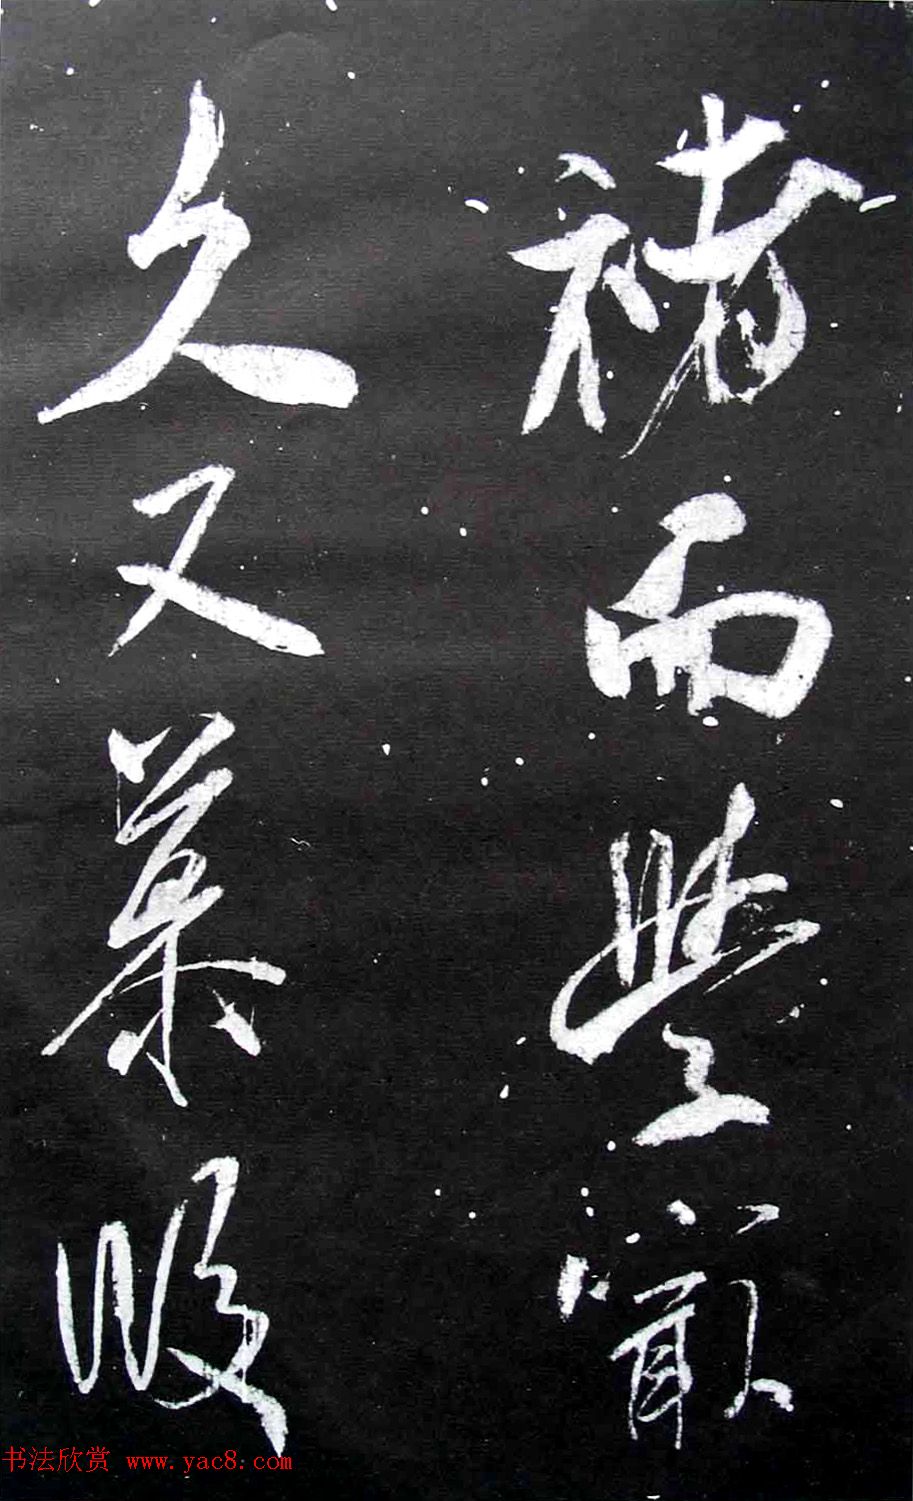 褚而學最
久又慕段
书法欣赏 www.yac8.com